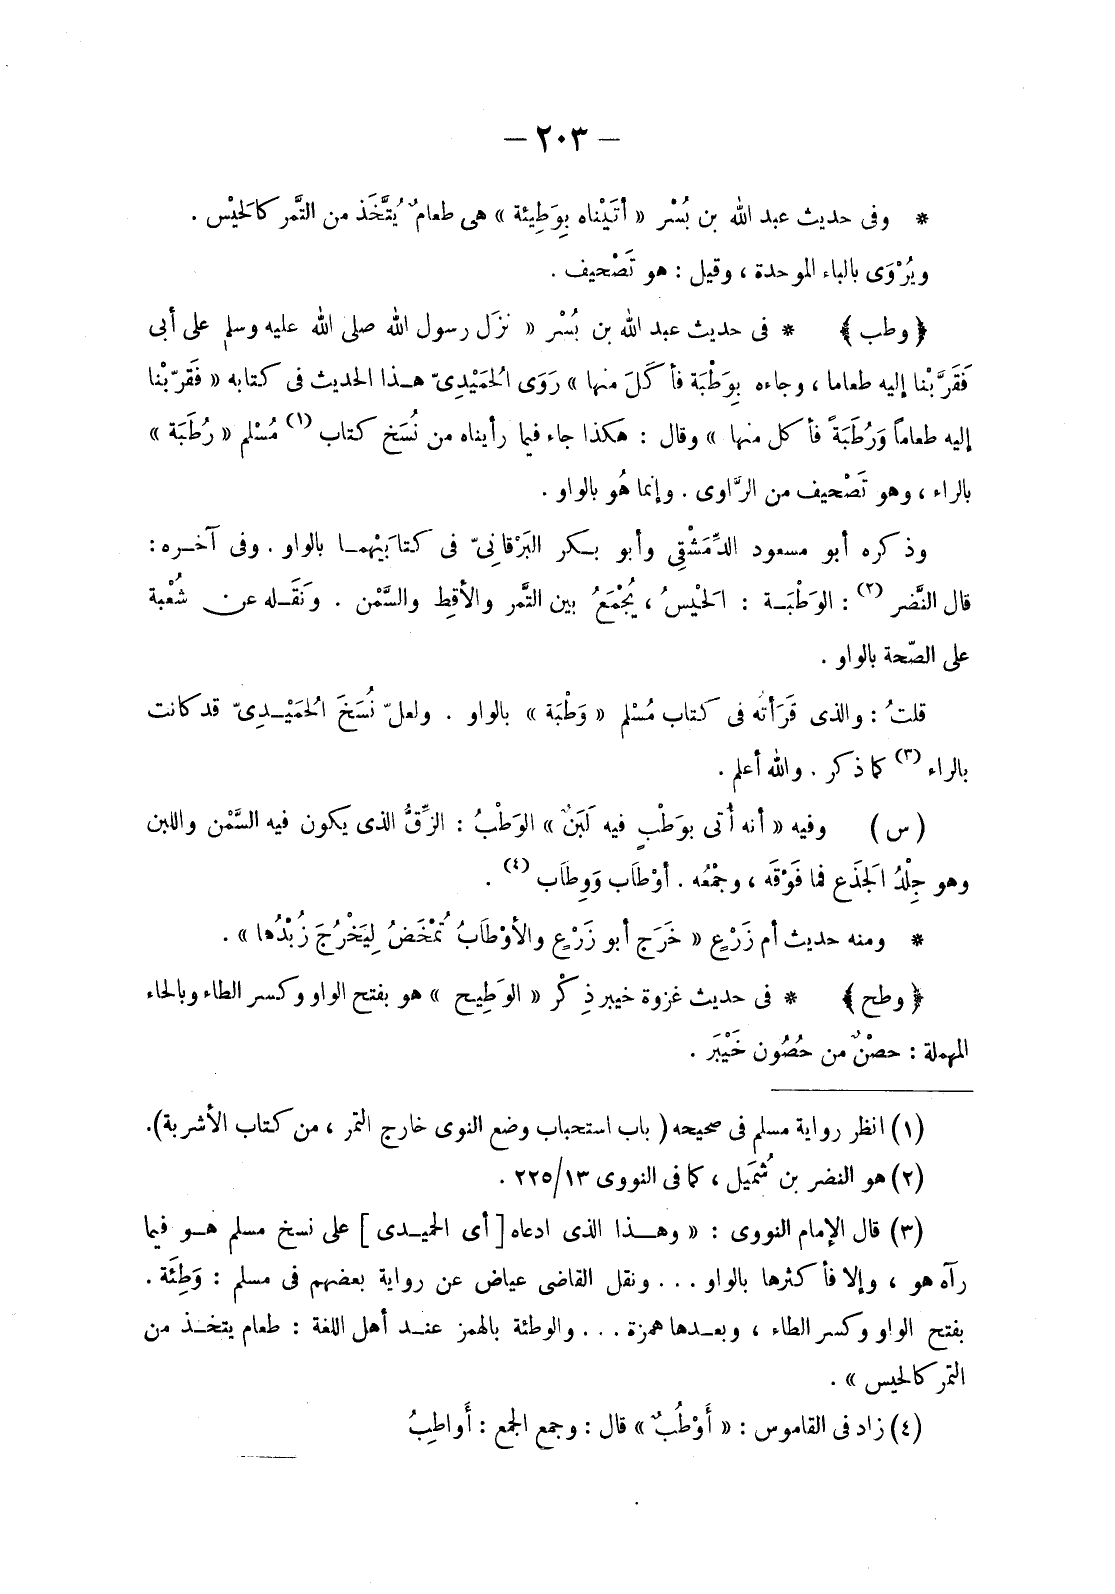 — ٢٠٣ —
* وفى حديث عبد الله بن بُسْر « أتَيْناه بِوَطِيئة » هى طعامٌ يُتَّخَذ من التَّمر كالَحيْس .
ويُرْوَى بالباء الموحدة ، وقيل : هو تَصْحيف .
﴿وطب﴾ * فى حديث عبد الله بن بُسْر « نزَل رسول الله صلى الله عليه وسلم على أبى
فَقَرَّبْنا إليه طعاما ، وجاءه بِوَطْبَة فأكَلَ منها » رَوَى الُحمَيْدِىّ هـذا الحديث فى كتابه « فقرّبْنا
إليه طعاماً وَرُطَبَةً فأكل منها » وقال : هكذا جاء فيما رأيناه من نُسَخ كتاب (١) مُسْلم « رُطَبَة »
بالراء ، وهو تَصْحيف من الرَّاوى . وإنما هُو بالواو .
وذكره أبو مسعود الدِّمَشْقِى وأبو بكر البَرْقانِىّ فى كتابَيْهما بالواو . وفى آخره :
قال النَّضر (٢) : الوَطْبَة : الَحيْسُ ، يُجْمَعُ بين التَّمر والأقِط والسَّمْن . ونَقَله عن شُعْبة
على الصّحة بالواو .
قلتُ : والذى قَرَأتُه فى كتاب مُسْلم « وَطْبَة » بالواو . ولعلّ نُسَخَ الُحمَيْدِىّ قد كانت
بالراء (٣) كما ذكر . والله أعلم .
(س) وفيه « أنه أُتى بوَطْبٍ فيه لَبَنٌ » الوَطْبُ : الزِّقُّ الذى يكون فيه السَّمْن واللبن
وهو جِلْدُ الَجذَع فما فَوْقَه ، وجمْعُه . أوْطاَب وَوِطاَب (٤) .
* ومنه حديث أم زَرْعٍ « خَرَج أبو زَرْعٍ والأوْطاَبُ تُمْخَضُ لِيَخْرُجَ زُبْدُها » .
﴿وطح﴾ * فى حديث غزوة خيبر ذِكْر « الوَطِيح » هو بفتح الواو وكسر الطاء وبالحاء
المهملة : حصْنٌ من حُصُون خَيْبَر .
(١) انظر رواية مسلم فى صحيحه ( باب استحباب وضع النوى خارج التمر ، من كتاب الأشربة).
(٢) هو النضر بن شُمَيل ، كما فى النووى ٢٢٥/١٣ .
(٣) قال الإمام النووى : « وهـذا الذى ادعاه [ أى الحميدى ] على نسخ مسلم هو فيما
رآه هو ، وإلا فأكثرها بالواو ... ونقل القاضى عياض عن رواية بعضهم فى مسلم : وَطِئَة .
بفتح الواو وكسر الطاء ، وبعدها همزة ... والوطئة بالهمز عند أهل اللغة : طعام يتخذ من
التمر كالحيس » .
(٤) زاد فى القاموس : « أَوْطُبٌ » قال : وجمع الجمع : أَواطِبُ